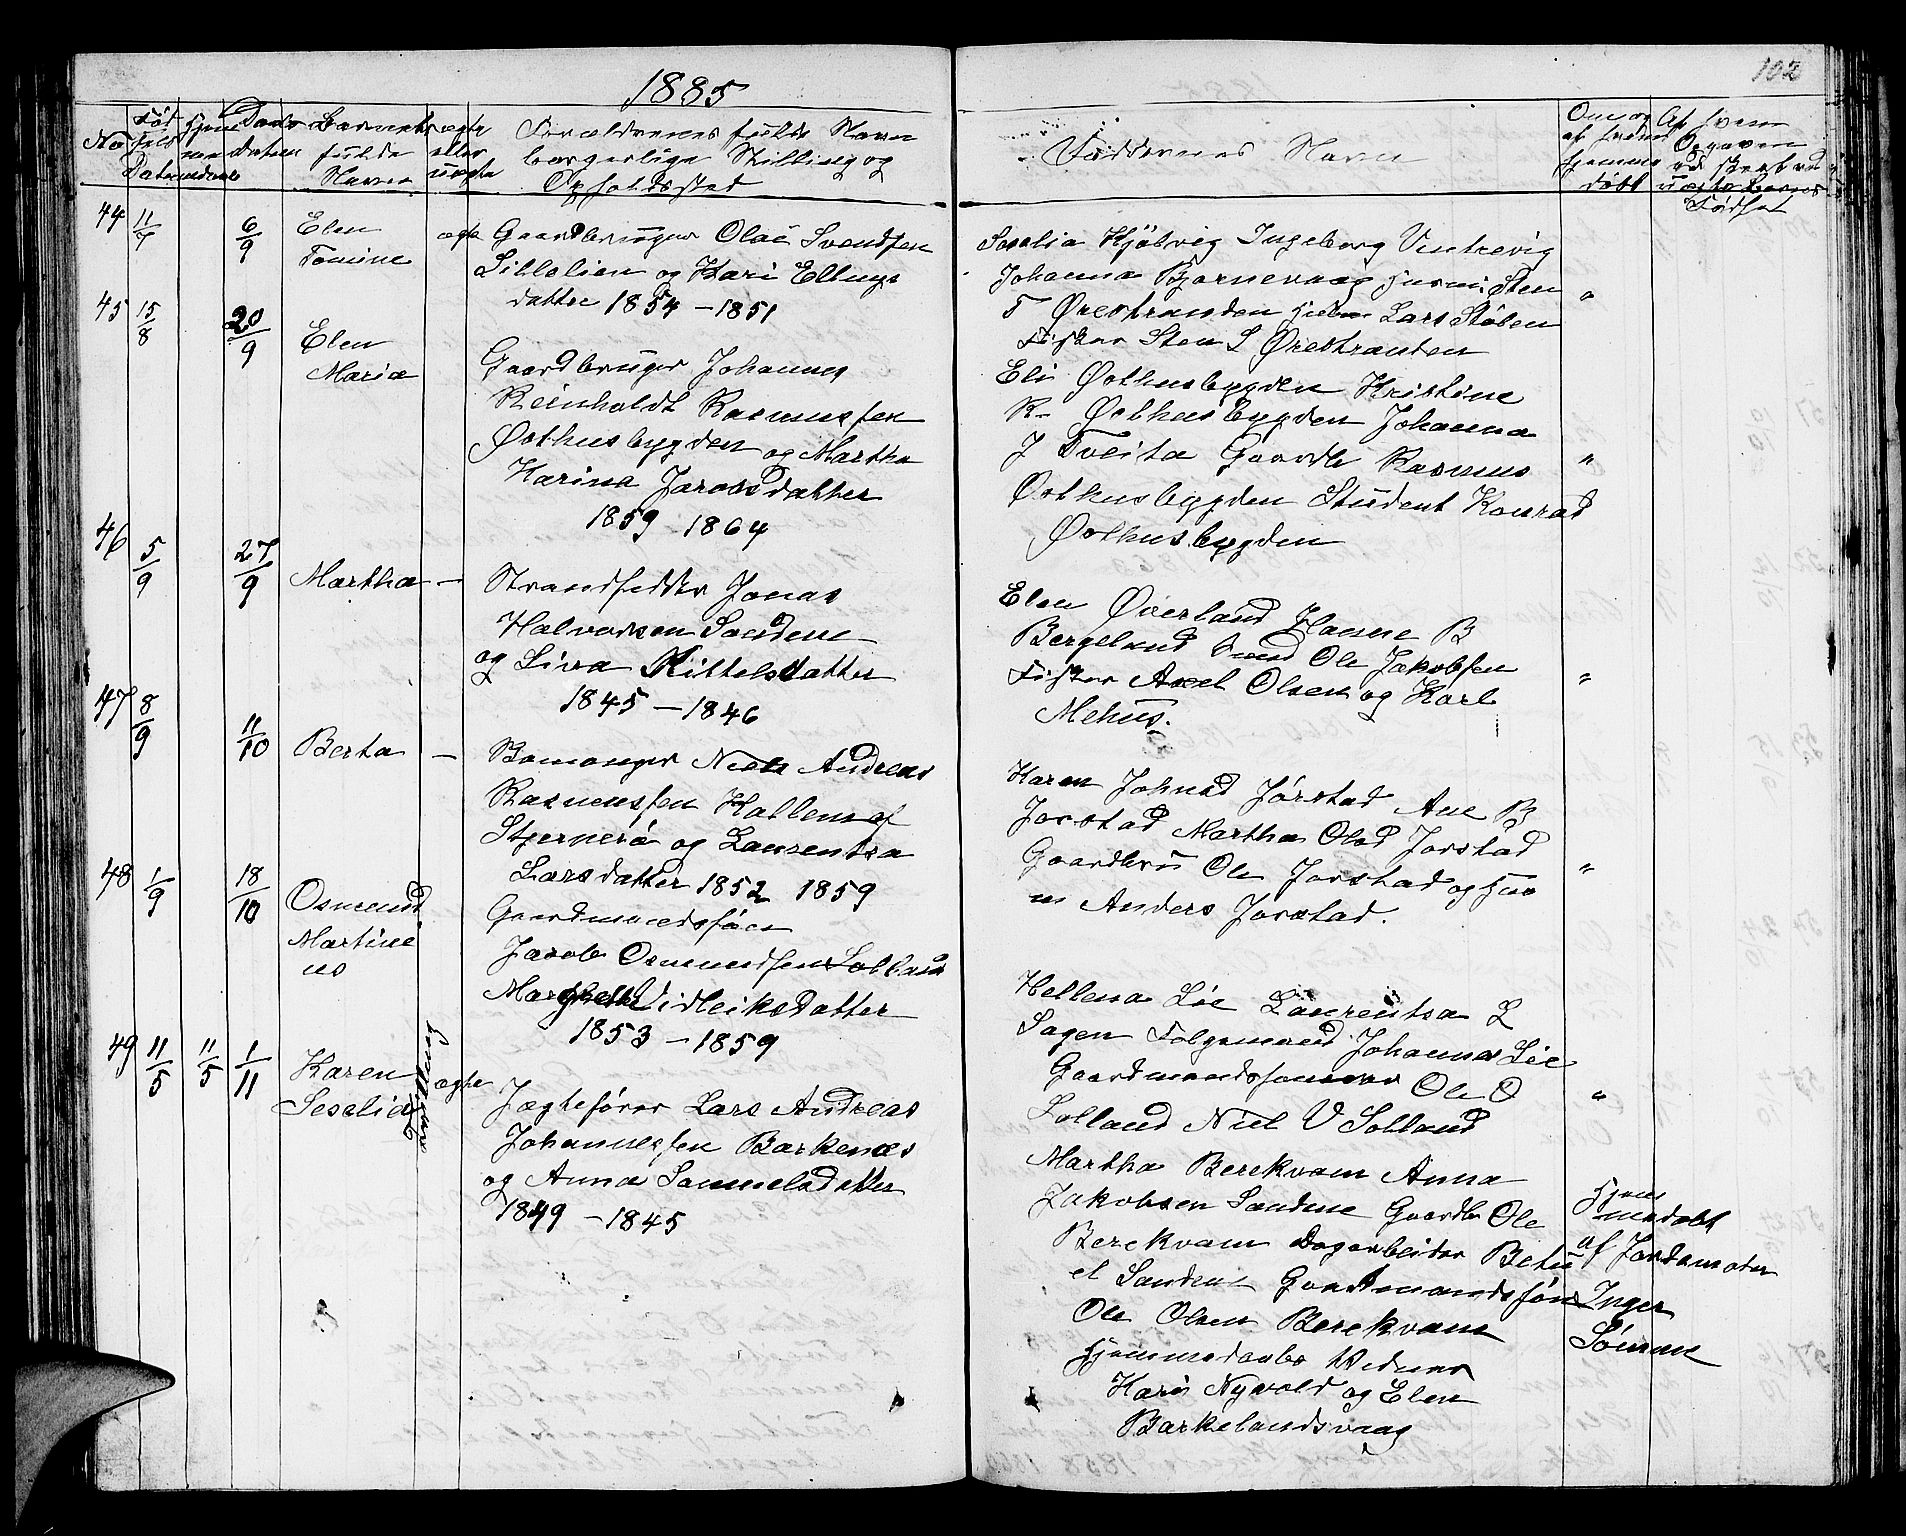 1885
102
No
Føds
els
Datum
Hjem
me
døbt
Daabs
datum
Barnets
fulde
Navn
ægte
eller
uægte
Forældrenes fulde Navn
borgerlige Stilling og
Opholdssted
Faddernes Navn
Om og
af hvem
hjemme
døbt
Af hvem
Opgaven
Fødsel
44 11/7 6/9 Elen
Tomine
ægte Gaardbruger Olai Svendsen
Lillelien og Kari Ellings
datter 1854 - 1851
Seselia Kjølvig Ingeborg Vintrevig
Johanna Bjørnevaag Husm: Sten
T Ørestranden Lars Støben
Fisker Sten S Ørestranden
"
45 15/8 20/9 Elen
Maria
Gaardbruger Johannes
Reinholdt Rasmussen
Østhusbygden og Martha
Karina Jacobsdatter
1859 - 1864
Eli Østhusbygden Kristine
R- Østhusbygden Johanna
J Tveita Gaardb Rasmus
Østhusbygden Student Konrad
Østhusbygden
"
46 5/9 27/9 Martha -
Strandsidder Jonas
Halvorsen Sandene
og Siva Kittelsdatter
1845 - 1846
Elen Øverland Hanne B
Bergeland Smed Ole Jakobsen
Fisker Axel Olsen og Karl
Mehus.
"
47 8/9 11/10 Berta -
Bomanger Niels Andreas
Rasmussen Hallem af
Stjernerø og Laurentsa
Larsdatter 1852 1859
Karen Johnsd Jørstad Ane B
Jørstad Martha Olsd Jørstad
Gaardbru Ole Jørstad og Hus
m Anders Jørstad.
"
48 1/9 18/10 Osmund
Martine
us
Gaardmandssøn
Jacob Osmundsen Solland
Marghetha Vidleiksdatter
1853 - 1859
Hellena Lie Laurentsa L
Sagen Folgemand Johannes Lie
Gaardmandssønner Ole O
Solland Niel V Solland
"
49 11/5 11/5 1/11 Karen
Seselia
ægte
Jægtefører Lars Andreas
Johannessen Barkenes
og Anna Samuelsdatter
1849 - 1845
Martha Berekvam Anna
Jakobsen Sandene Gaardb Ole
Berekvam Dagarbeider Betu
el Sandene Gaardmandssøn
Ole Olsen Berekvam
Hjemmedaabs Vidner
Karis Nyvold og Elen
Barkelandsvaag
Hjem
medøbt
af Jordamoder
Inger
Sømme